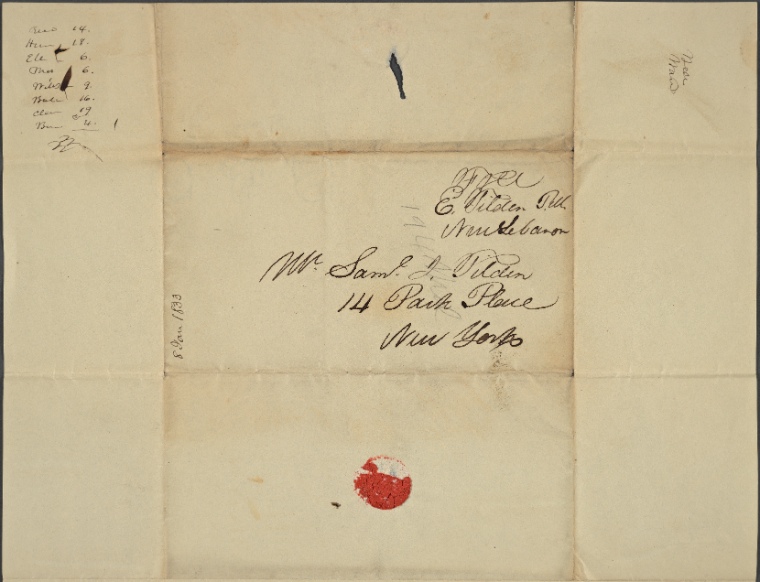 14.
18.
Ele 6.
6.
9.
16.
19
4.
Free
E. Tilden P.M.
New Lebanon
Mr. Saml. J. Tilden
14 Park Place
New York
8 Jan 1833